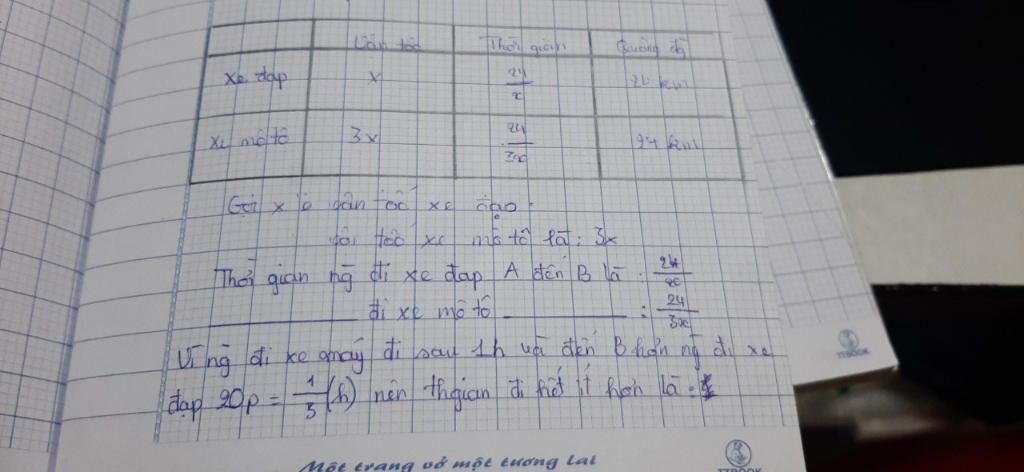 Vận tốc Thời gian Quãng đg
xe đạp x 24/x 24 km
xe mô tô 3x 24/3x 24 km
Gọi x là vận tốc xe đạp
tốc xe mô tô là: 3x
Thời gian ng đi xe đạp A đến B là : 24/x
đi xe mô tô : 24/3x
Vì ng đi xe máy đi sau 1h và đến B hơn ng đi xe
đạp 20p = 1/3 (h) nên thgian đi hết ít hơn là :
Một trang vở một tương lai
TTBOOK
TTBOOK